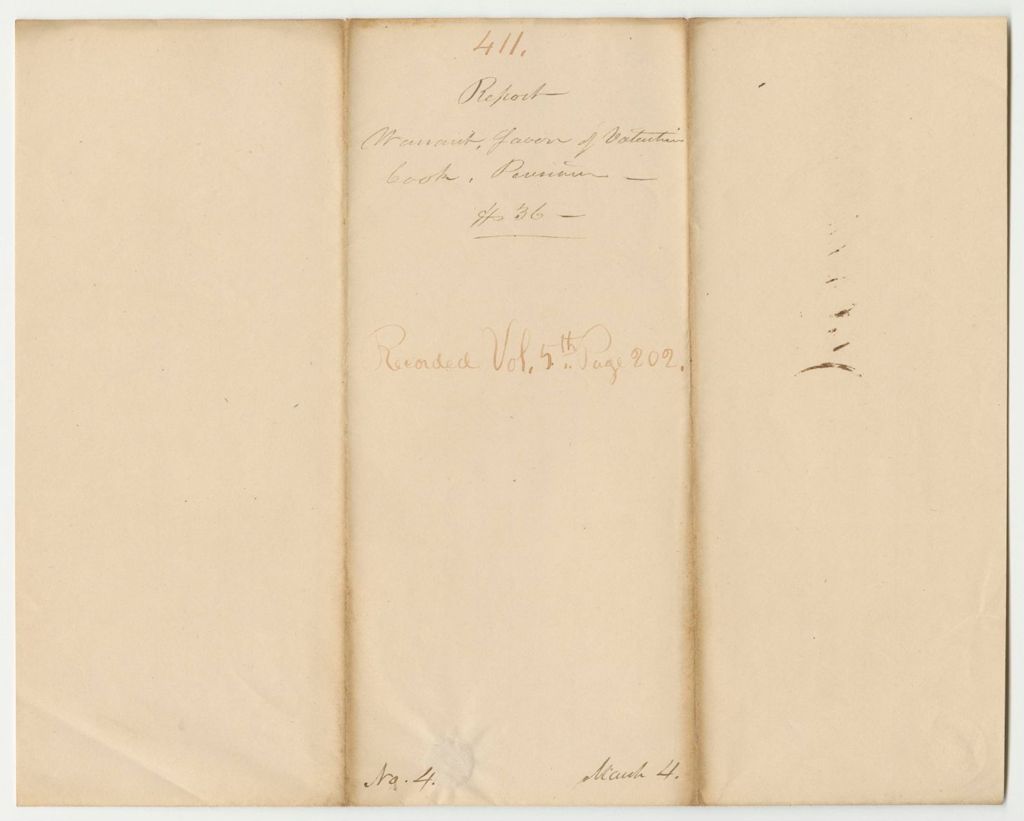 411.
Report
Warrant, favor of Valentine
Cook, Pension —
$36 —
Recorded Vol. 5th Page 202.
No. 4.
March 4.